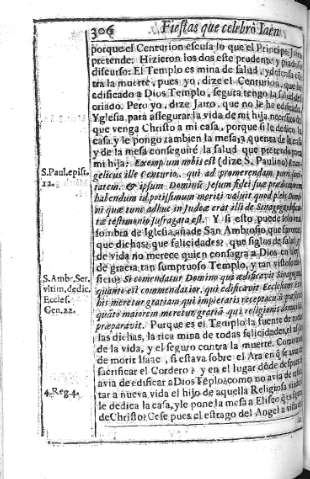 306 Fiestas que celebrò Iaen
porque el Centurion escusa lo que el Principe Jairo
pretende. Hizieron los dos este prudente, y piadoso
discurso: El Templo es mina de salud, y defensa con-
tra la muerte, pues yo, dize el Centurion, que he
edificado a Dios Templo, segura tengo la salud del
criado. Pero yo, dize Jairo, que no le he edificado
Yglesia, para assegurar la vida de mi hija, necessito de
que venga Christo a mi casa, porque si le dedico la
casa, y le pongo tambien la mesa, a quenta de la casa,
y de la mesa conseguirè la salud que pretendo para
S.Paul.epist.
22.
mi hija: Exemplum mihi est (dize S. Paulino) Euan-
gelicus ille Centurio, qui ad promerendam
& ipsum Dominum Jesum fidei suæ
habendum id potissimum meriti valuit quod
ni quæ tunc adhuc in Iudæa erat illi de Sinagoga
testimonio suffragata est. Y si esto puede
sombra de Iglesia, añade San Ambrosio, que
que dichas; que felicidades; que siglos de salud, y
de vida no merece quien consagra a Dios en ley
de gracia, tan sumptuoso Templo, y tan vistoso
S.Amb.Ser.
vltim.dedic.
Eccles.
Gen.22.
ficio: Si commendatur Domino qui ædificauit Sinagogam
quanto est commendatior, qui edificauit Ecclesiam? Et si
his meretur gratiam qui impietatis receptacula
quāto maiorem meretur gratiā qui religionis
præparauit. Porque es el Templo la fuente de todas
las dichas, la rica mina de todas felicidades, el
de la vida, y el seguro contra la muerte. Como
de morir Isaac, si estava sobre el Ara en q̃ se avia de
sacrificar el Cordero? y en el lugar dōde despues se
avia de edificar a Dios Tēplo? como no avia de
4.Reg.4.
tar a nueva vida el hijo de aquella Religiosa viuda
le dedica la casa, y le pone la mesa a Eliseo
de Christo? Cese pues el estrago del Angel a vista